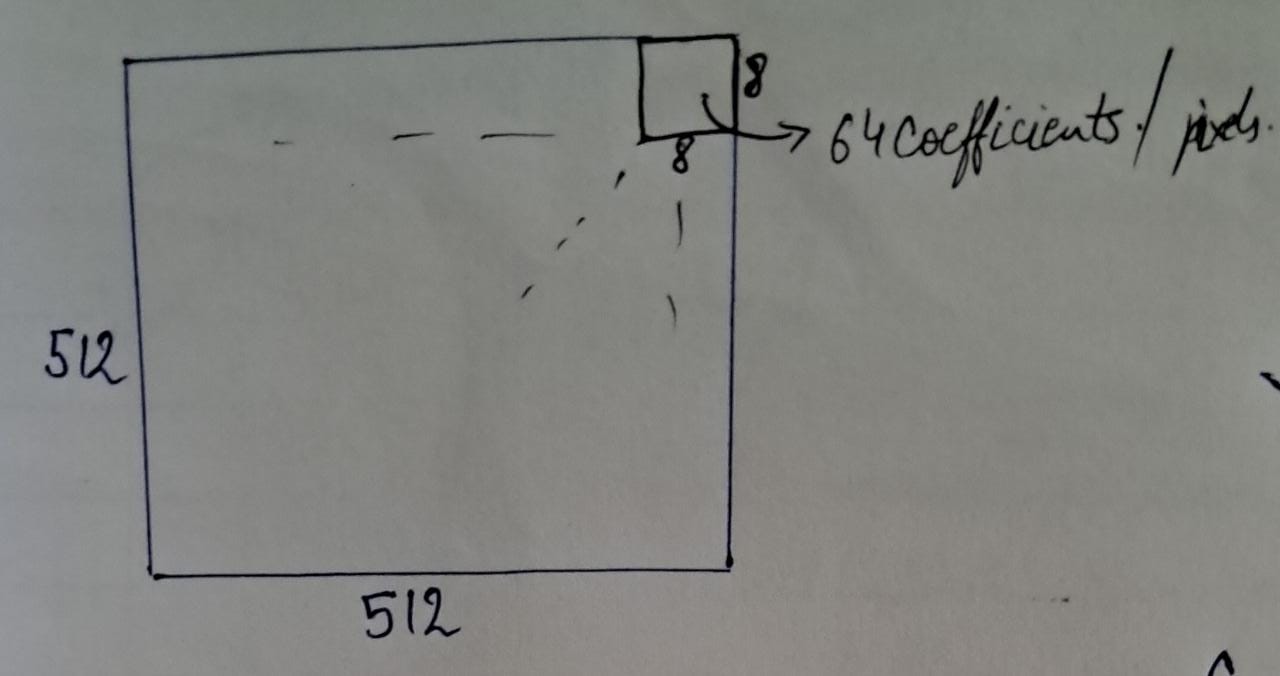 8
64 Coefficients / pixels.
8
512
512